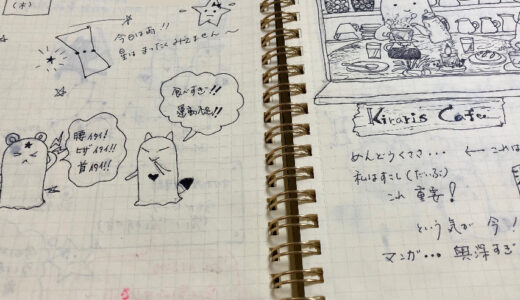 (木)
今日は雨!!
星はまったくみえません〜
食べすぎ!!
運動不足!!
腰イタイ!
ヒザイタイ!!
首イタイ!!
Kiraris Cafe
めんどうくさ... ← これは
私はすこし(だいぶ)
これ 重要!
という気が 今!
マンガ... 奥深すぎ